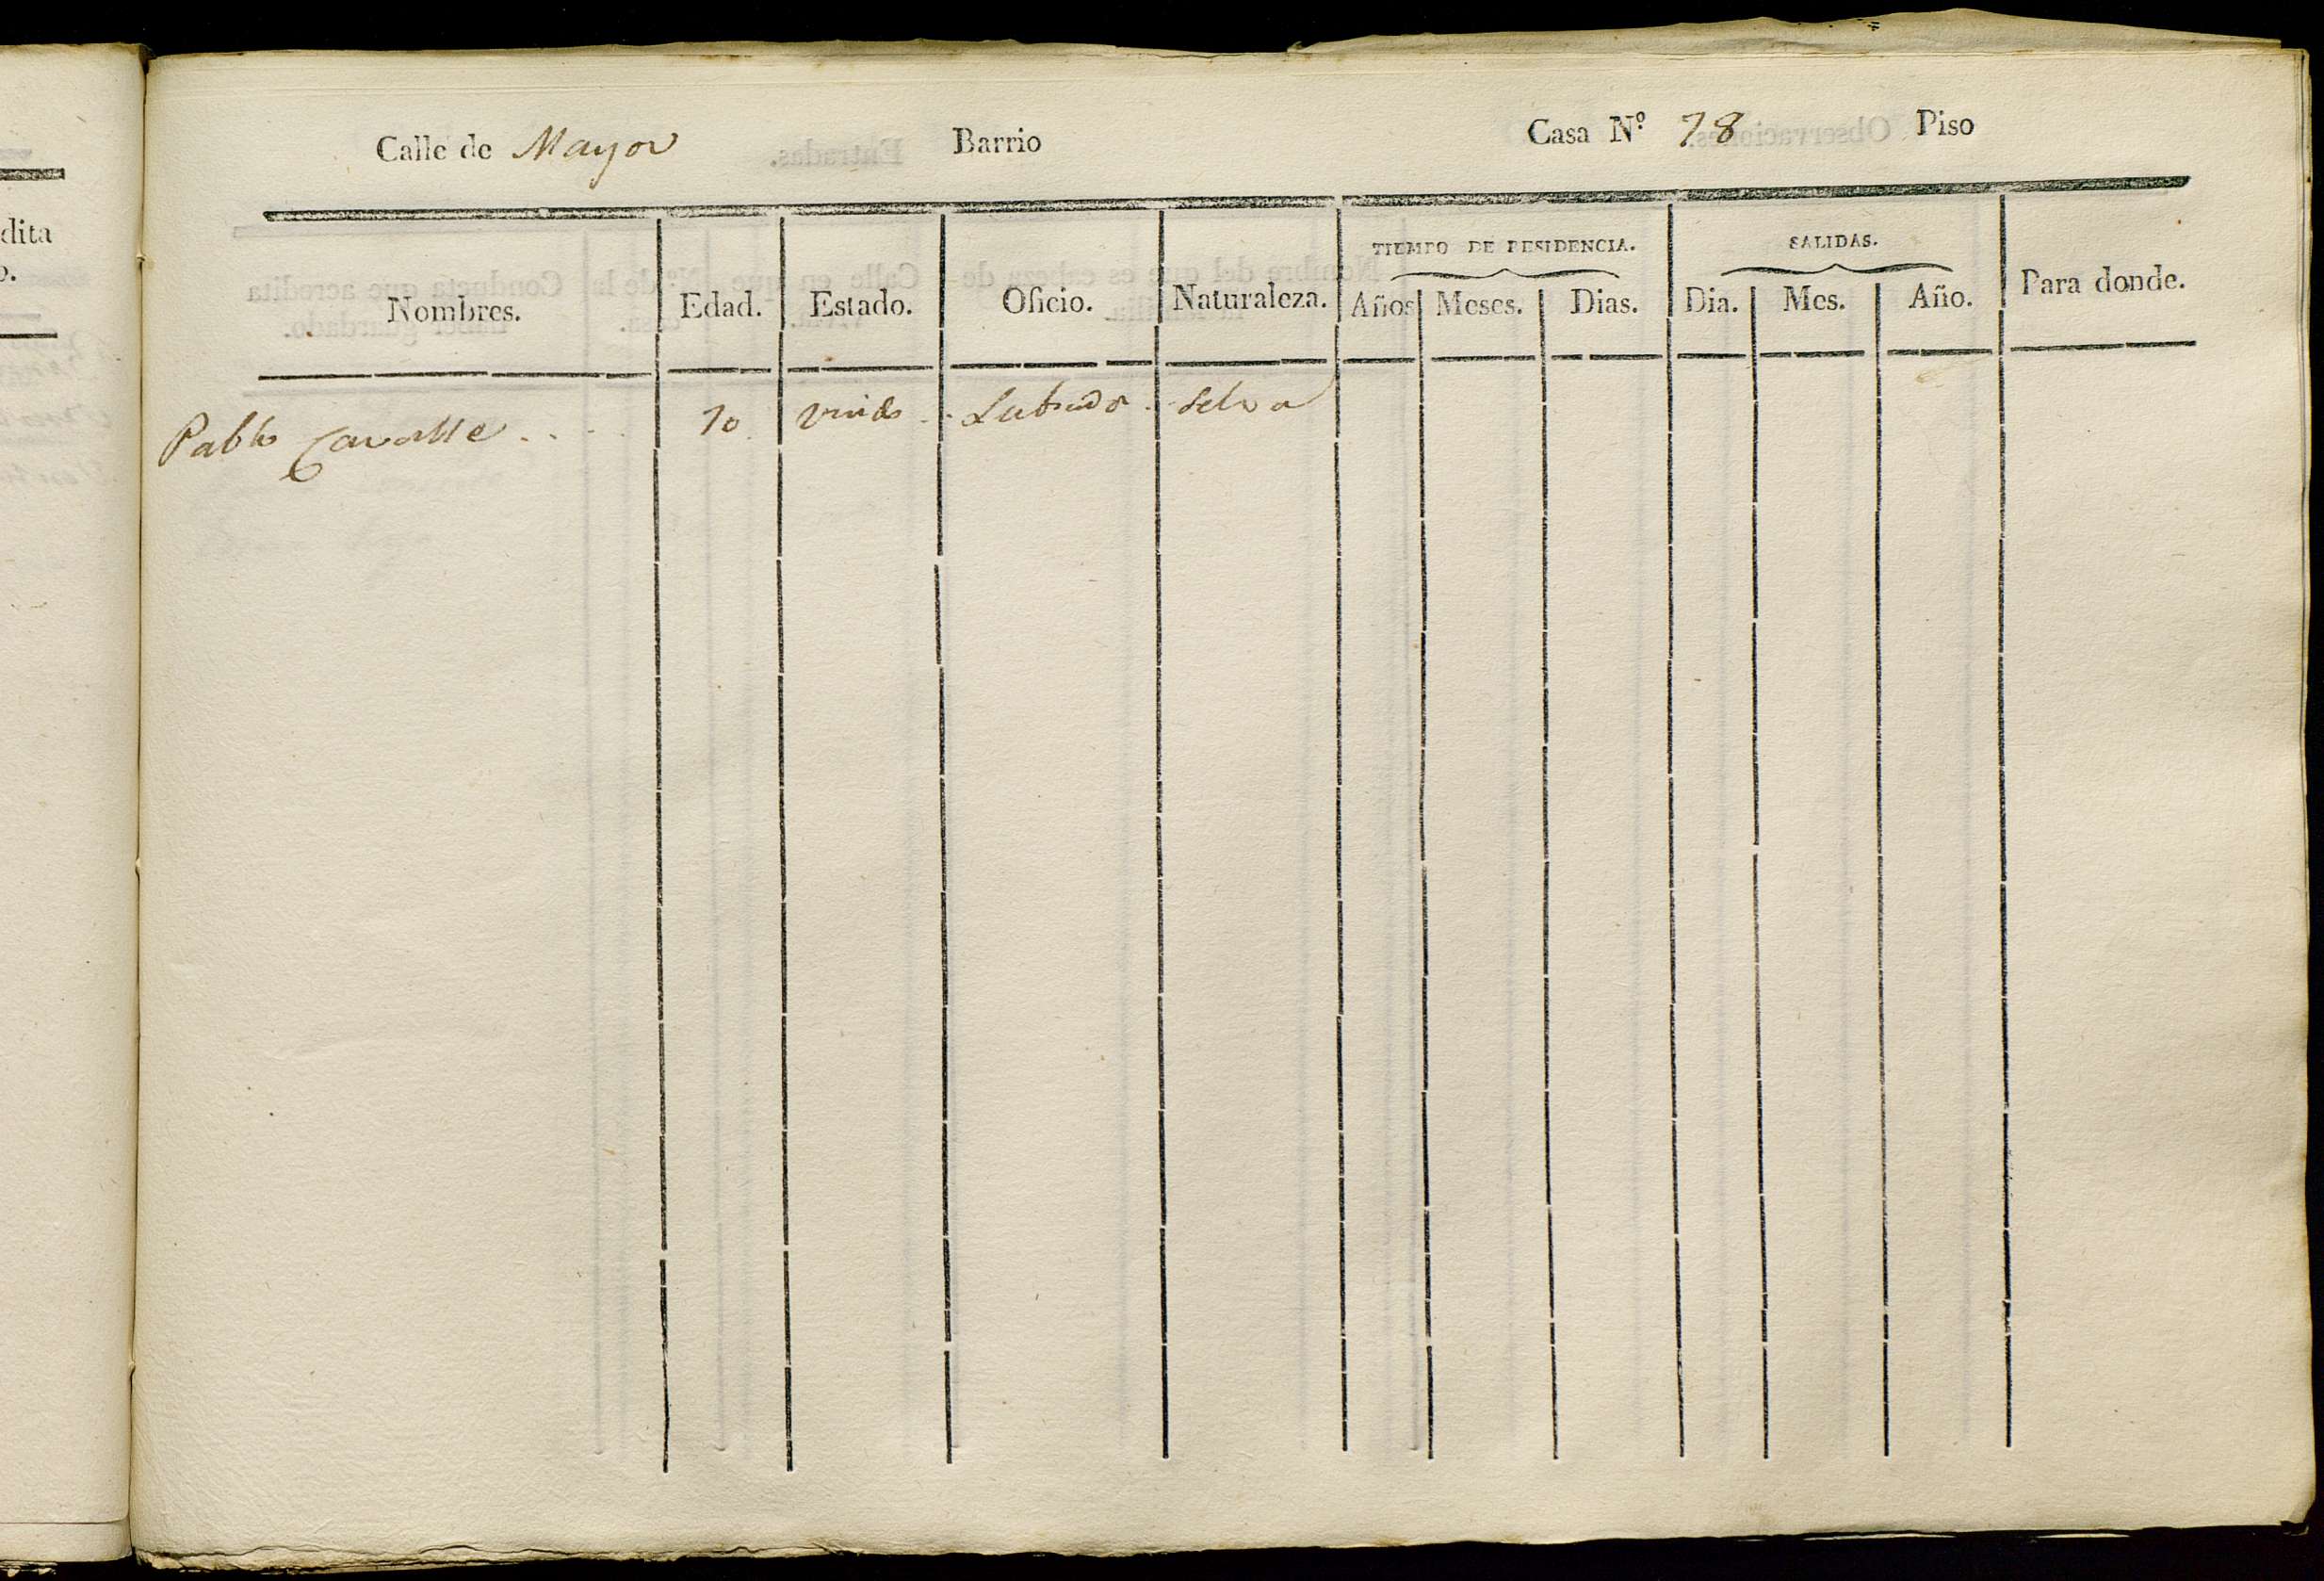 dita
o.
Calle de Mayor Barrio Casa Nº 78 Piso
TIEMPO DE RESIDENCIA. SALIDAS.
Nombres. Edad. Estado. Oficio. Naturaleza. Años Meses. Dias. Dia. Mes. Año. Para donde.
Pablo Cavalle 70 viudo Labrador Selva